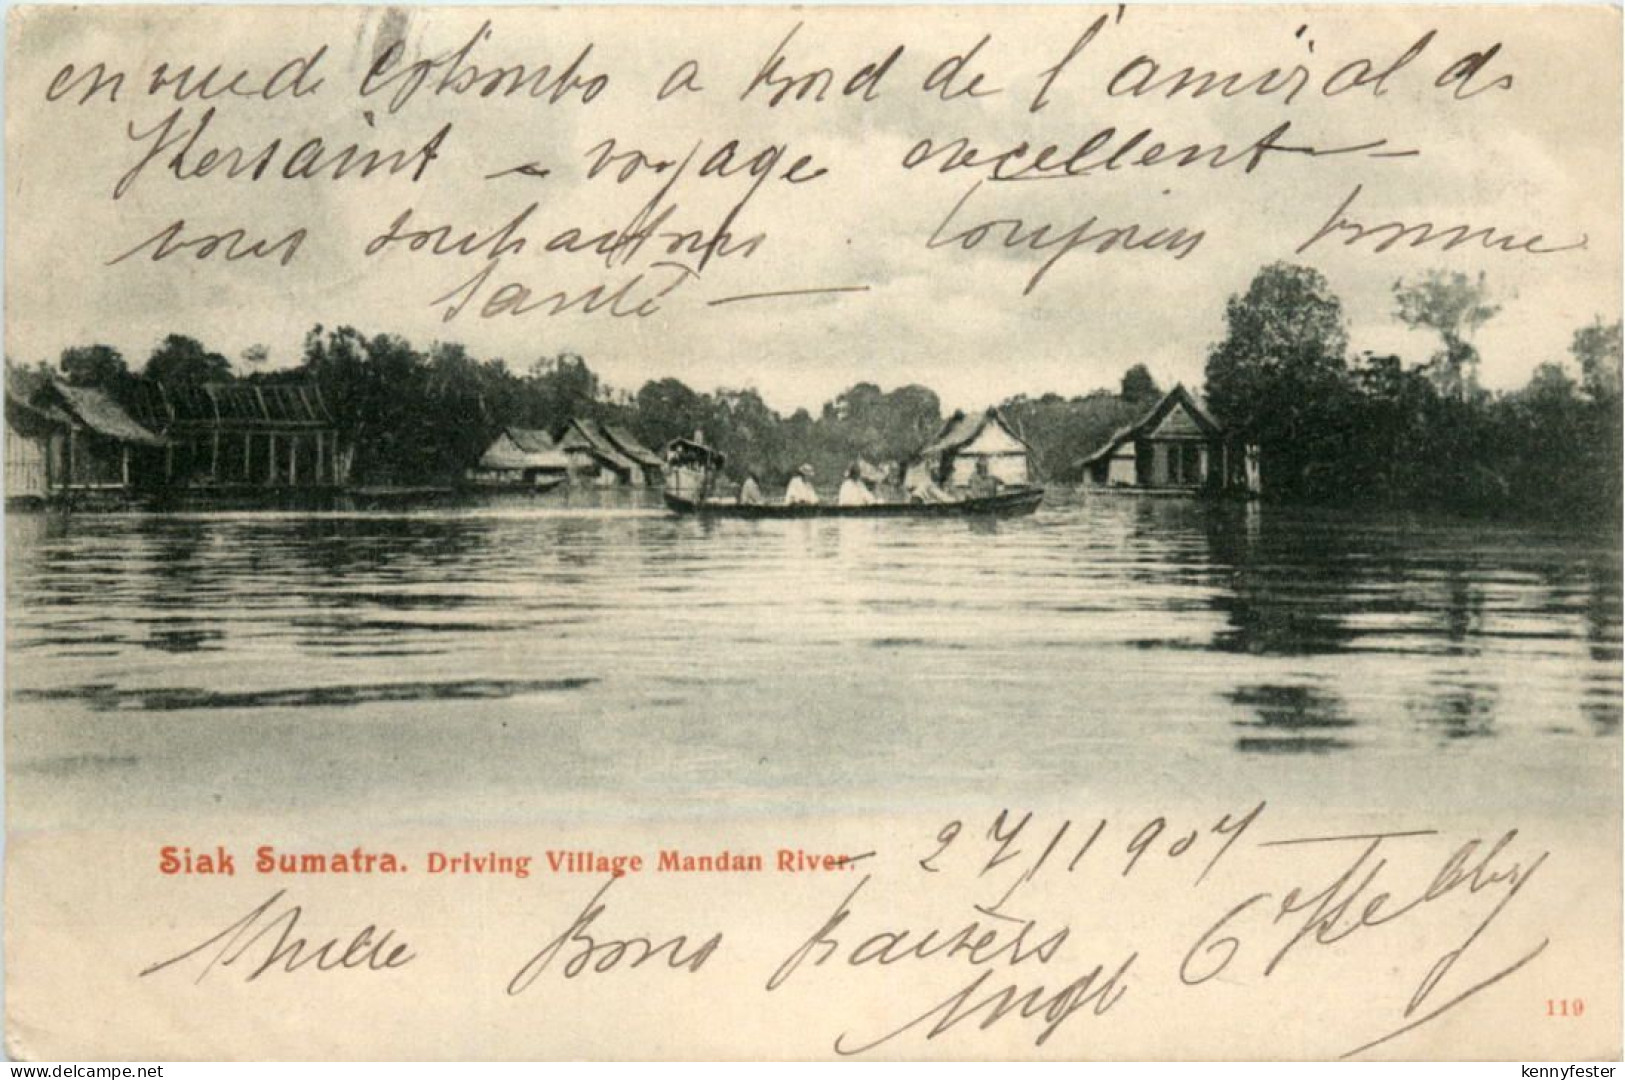 en vue de Colombo a bord de l'amiral de
Kersaint - voyage excellent -
vous souhaitons toujours bonne
santé -
Siak Sumatra. Driving Village Mandan River.
27/1 1907
Mille Bons Baisers
119
delcampe.net
kennyfester